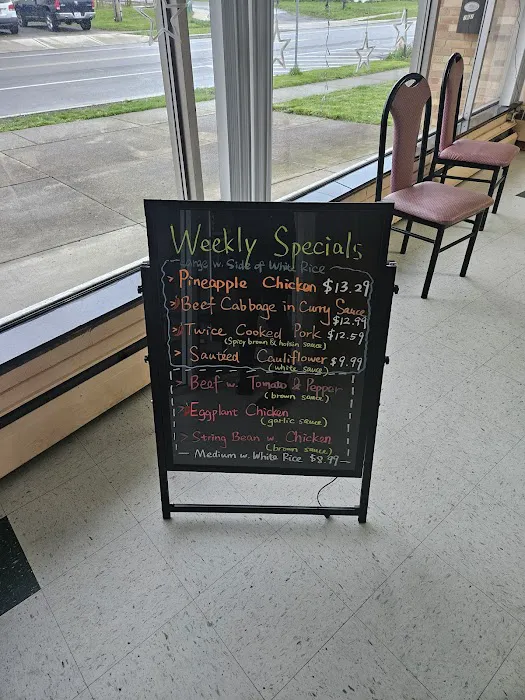 Weekly Specials
Large w. Side of White Rice
> Pineapple Chicken $13.29
> Beef Cabbage in Curry Sauce
$12.99
> Twice Cooked Pork $12.59
(Spicy brown & hoisin sauce)
> Sautéed Cauliflower $9.99
(white sauce)
> Beef w. Tomato & Pepper
(brown sauce)
> Eggplant Chicken
(garlic sauce)
> String Bean w. Chicken
(brown sauce)
— Medium w. White Rice $8.99 —